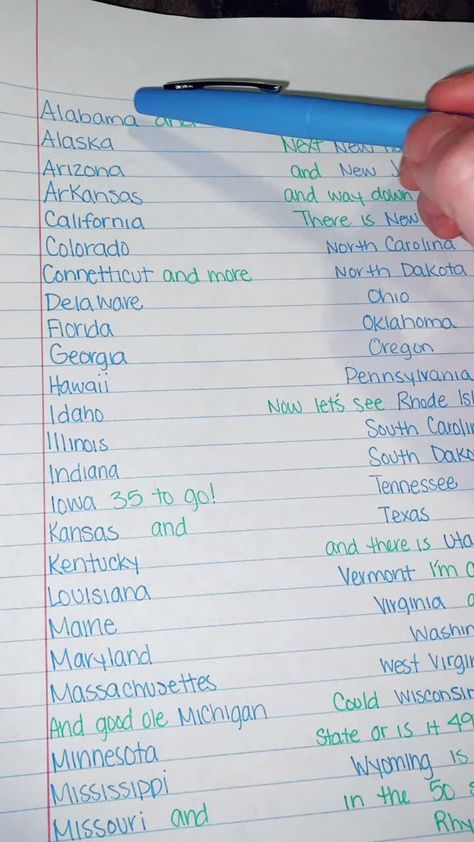 Alabama and
Alaska
Arizona
Arkansas
California
Colorado
Connetticut and more
Delaware
Florida
Georgia
Hawaii
Idaho
Illinois
Indiana
Iowa 35 to go!
Kansas and
Kentucky
Louisiana
Maine
Maryland
Massachusettes
And good ole Michigan
Minnesota
Mississippi
Missouri and
Next New
and New J
and way down
There is New
North Carolina
North Dakota
Ohio
Oklahoma
Oregon
Pennsylvania
Now let's see Rhode Isl
South Carolin
South Dako
Tennessee
Texas
and there is Uta
Vermont I'm
Virginia
Washin
West Virgin
Could Wisconsin
State or is it 49
Wyoming is
in the 50
Rhy